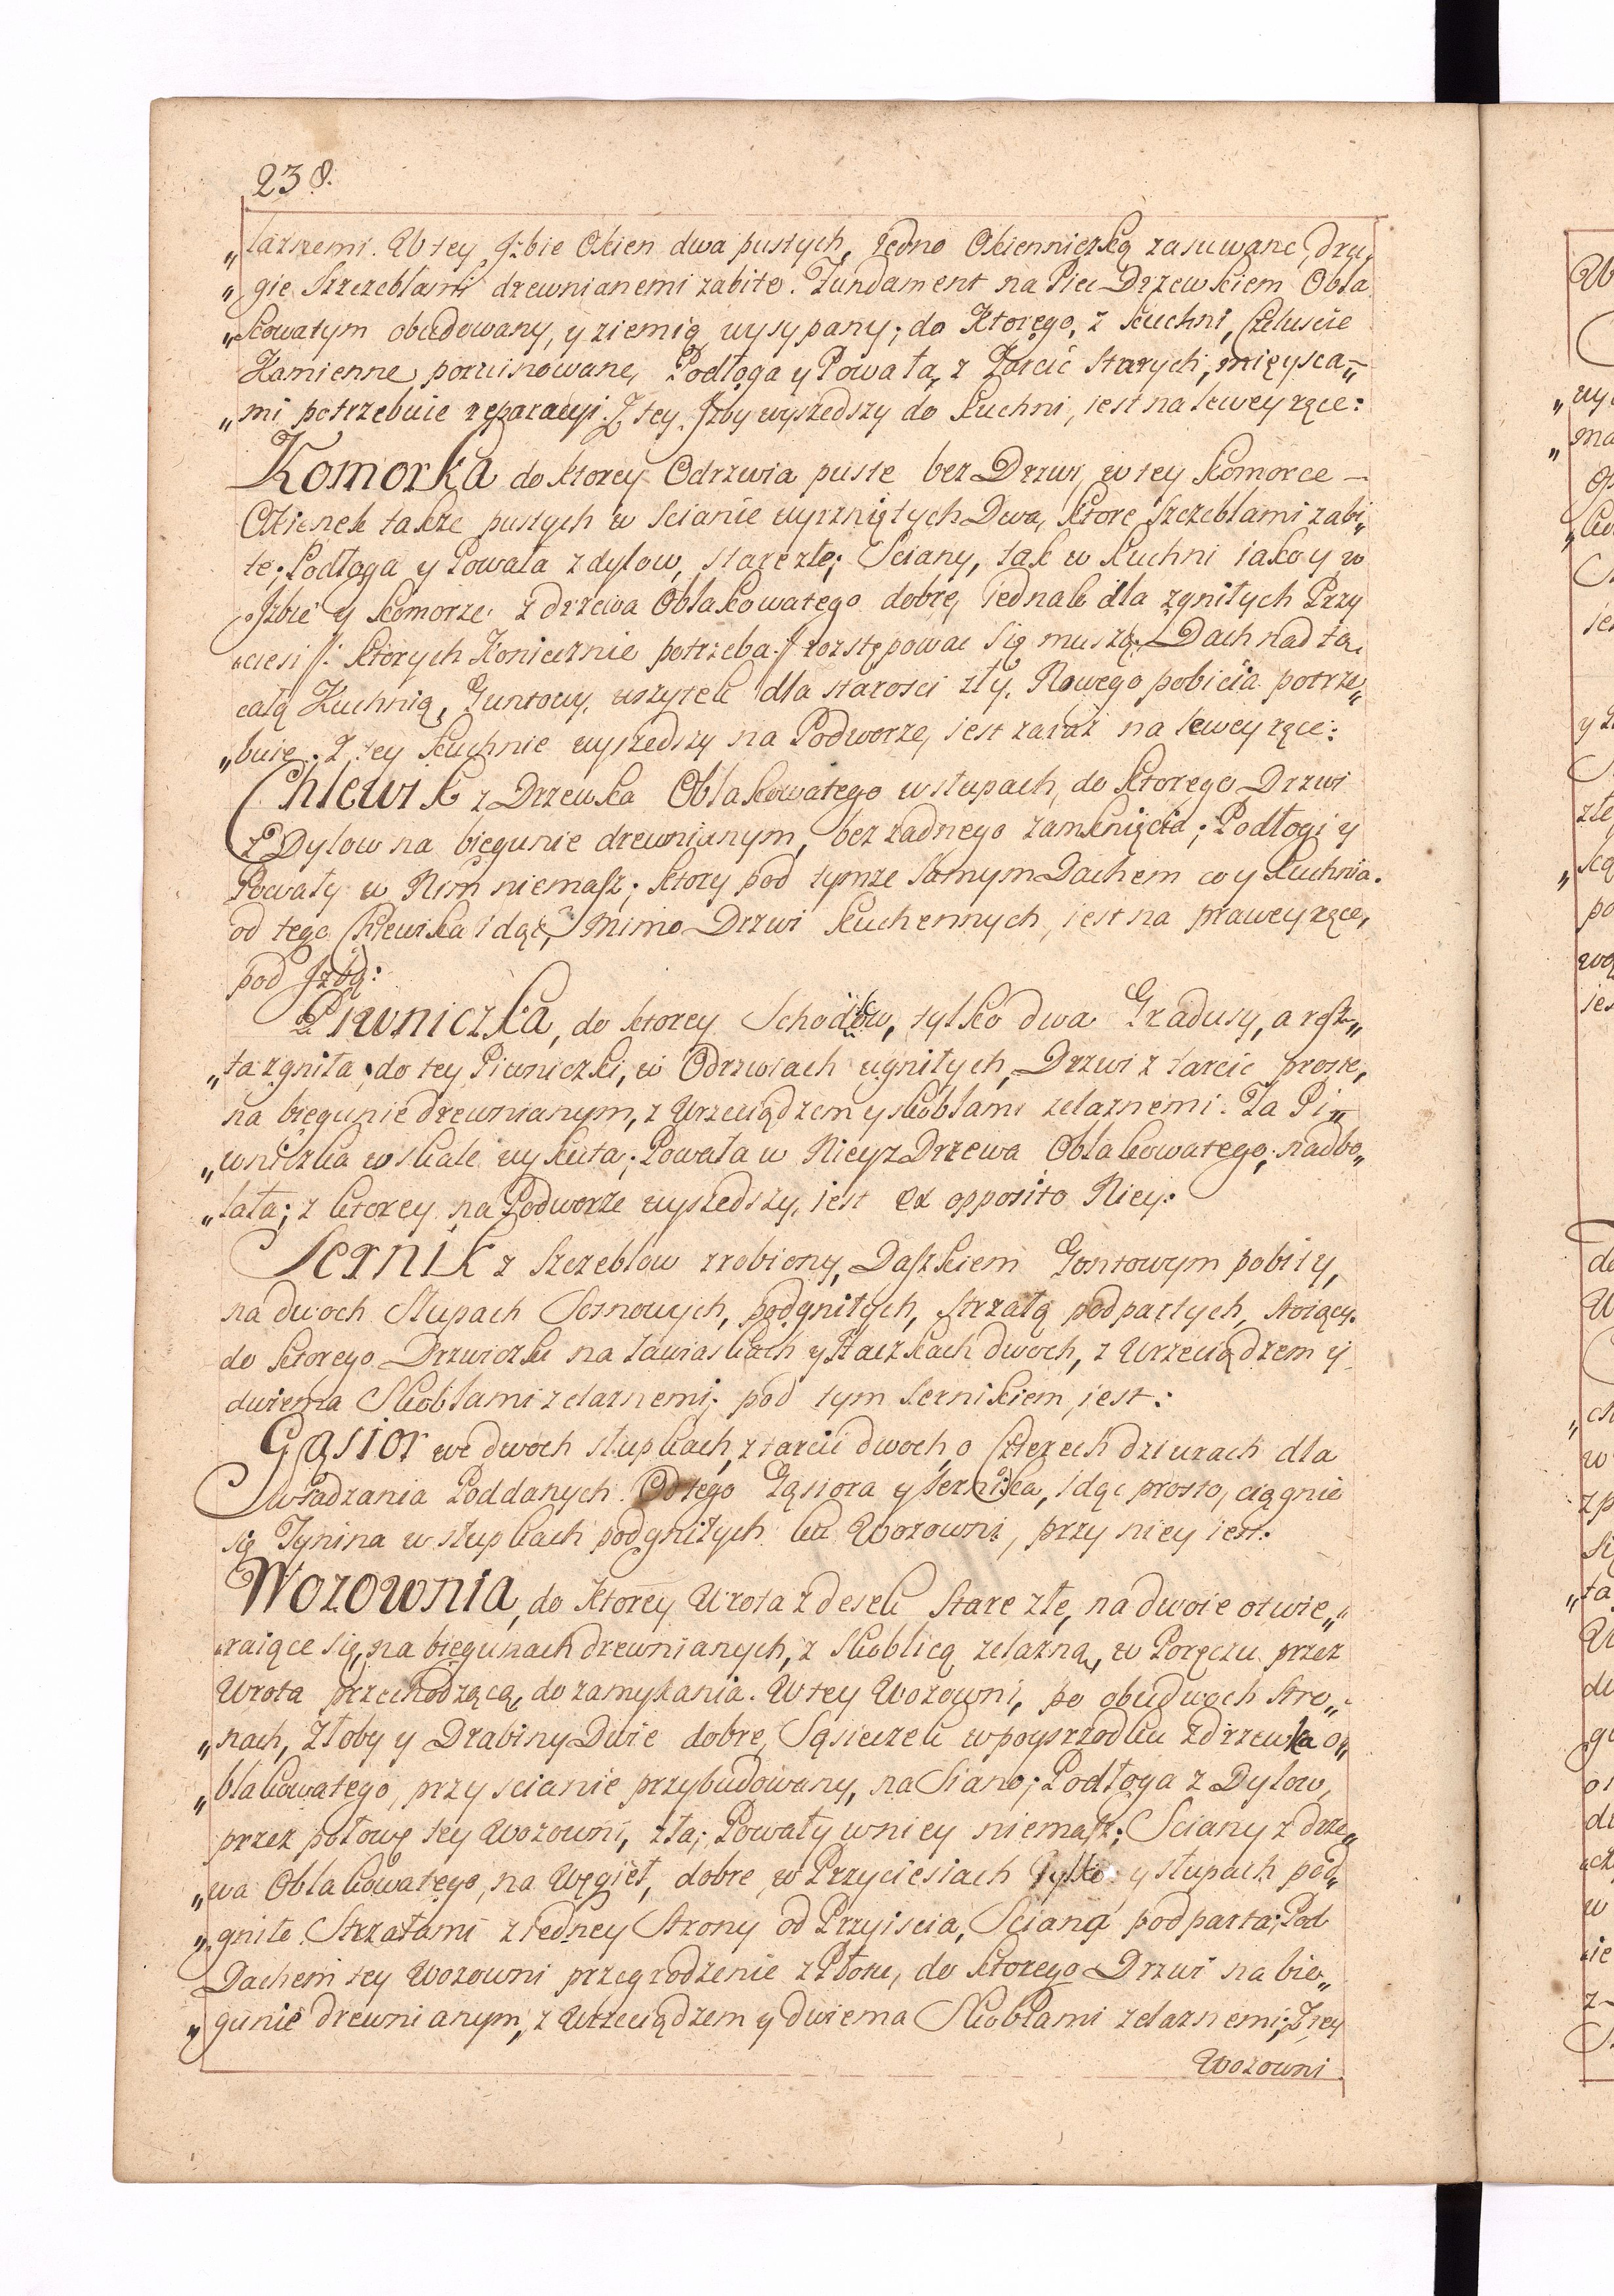 238.
„laznemi. W tey Jzbie Okien dwa pustych, Jedno Okienniczką zasuwane, dru„
„gie Szczeblami drewnianemi zabite. Fundament na Piec Drzewkiem Obla
„kowatym obudowany, y ziemią wysypany; do Ktorego, z kuchni, Czeluscie
Kamienne, poruinowane, Podłoga y Powała, z Tarcic starych, mieysca„
„mi potrzebuie reparacyi. Z tey Jzby wyszedszy do kuchni, iest na lewey ręce:
Komorka do ktorey Odrzwia puste bez Drzwi, w tey komorce –
Okienek takze pustych w scianie wyrzniętych Dwa, ktore szczeblami zabi„
te; Podłoga y Powała z dylow, stare złe; Sciany, tak w kuchni iako y w
Jzbie y komorze z drzewa Oblakowatego dobre, iednak dla zgniłych Przy
„ciesi /: ktorych Koniecznie potrzeba :/ rozstępowac się muszą. Dach nad tą
całą Kuchnią, Guntowy, wszytek dla starosci zły, Nowego pobicia potrze„
„buie. Z tey kuchnie wyszedszy na Podworze, iest zaraz na lewey ręce:
Chlewik z Drzewka Oblakowatego w słupach, do ktorego Drzwi
z Dylow na biegunie drewnianym, bez zadnego zamknięcia; Podłogi y
Powały w Nim niemasz; ktory pod tymze samym Dachem co y kuchnia.
od tego Chlewika idąc, mimo Drzwi kuchennych, iest na prawey ręce,
pod Jzbą:
Piwniczka, do ktorey Schodow, tylko dwa Gradusy, a resz„
„ta zgniła, do tey Piwniczki, w Odrzwiach ugniłych, Drzwi z tarcic proste,
na biegunie drewnianym, z Wrzeciądzem y skoblami zelaznemi. Ta Pi„
„wniczka w skale wykuta; Powała w Niey z Drzewa Oblakowatego, nadbo„
„lała; z ktorey na Podworze wyszedszy, iest ex opposito Niey:
Sernik z szczeblow zrobiony, Daszkiem Gontowym pobity,
na dwoch Słupach Sosnowych, podgniłych, strzałą podpartych, stoiący.
do ktorego Drzwiczki na zawiaskach y Haczkach dwoch, z Wrzeciądzem y
dwiema Skoblami zelaznemi; pod tym sernikiem, iest:
Gąsior we dwoch słupkach, z tarcic dwoch, o Czterech dziurach dla
wsadzania Poddanych. Od tego Gąsiora y sernika, idąc prosto, ciągnie
się Tynina w słupkach podgniłych ku Wozowni, przy niey iest:
Wozownia, do ktorey Wrota z desek stare złe, na dwoie otwie„
„raiące się, na biegunach drewnianych, z Skoblicą zelazną, w Poręczu przez
Wrota przechodzącą, do zamykania. W tey Wozowni, po obudwoch stro„
„nach, Złoby y Drabiny Dwie dobre, Sąsieczek w poyrzodku z drzewka o„
„blakowatego, przy scianie przybudowany, na Siano; Podłoga z Dylow,
przez połowę tey Wozowni, zła; Powały w niey niemasz; Sciany z drze„
„wa Oblakowatego, na Węgieł, dobre, w Przyciesiach tylko y słupach pod„
„gniłe. Strzałami z iedney Strony od Przyiscia, Sciana podparta; Pod
Dachem tey Wozowni przegrodzenie z Płoto, do ktorego Drzwi na bie„
„gunie drewnianym, z Wrzeciądzem y dwiema Skoblami zelaznemi; Z tey
Wozowni